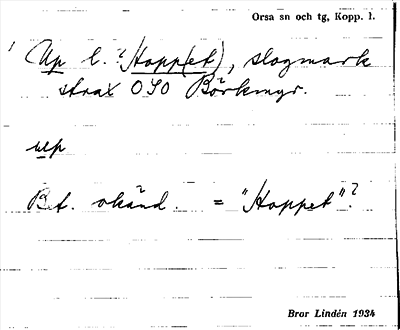 Orsa sn och tg, Kopp. l.
Up l. "Hopp(et), slogmark
strax OSO Börkmyr.
up
Bet. okänd. = "Hoppet"?
Bror Lindén 1934